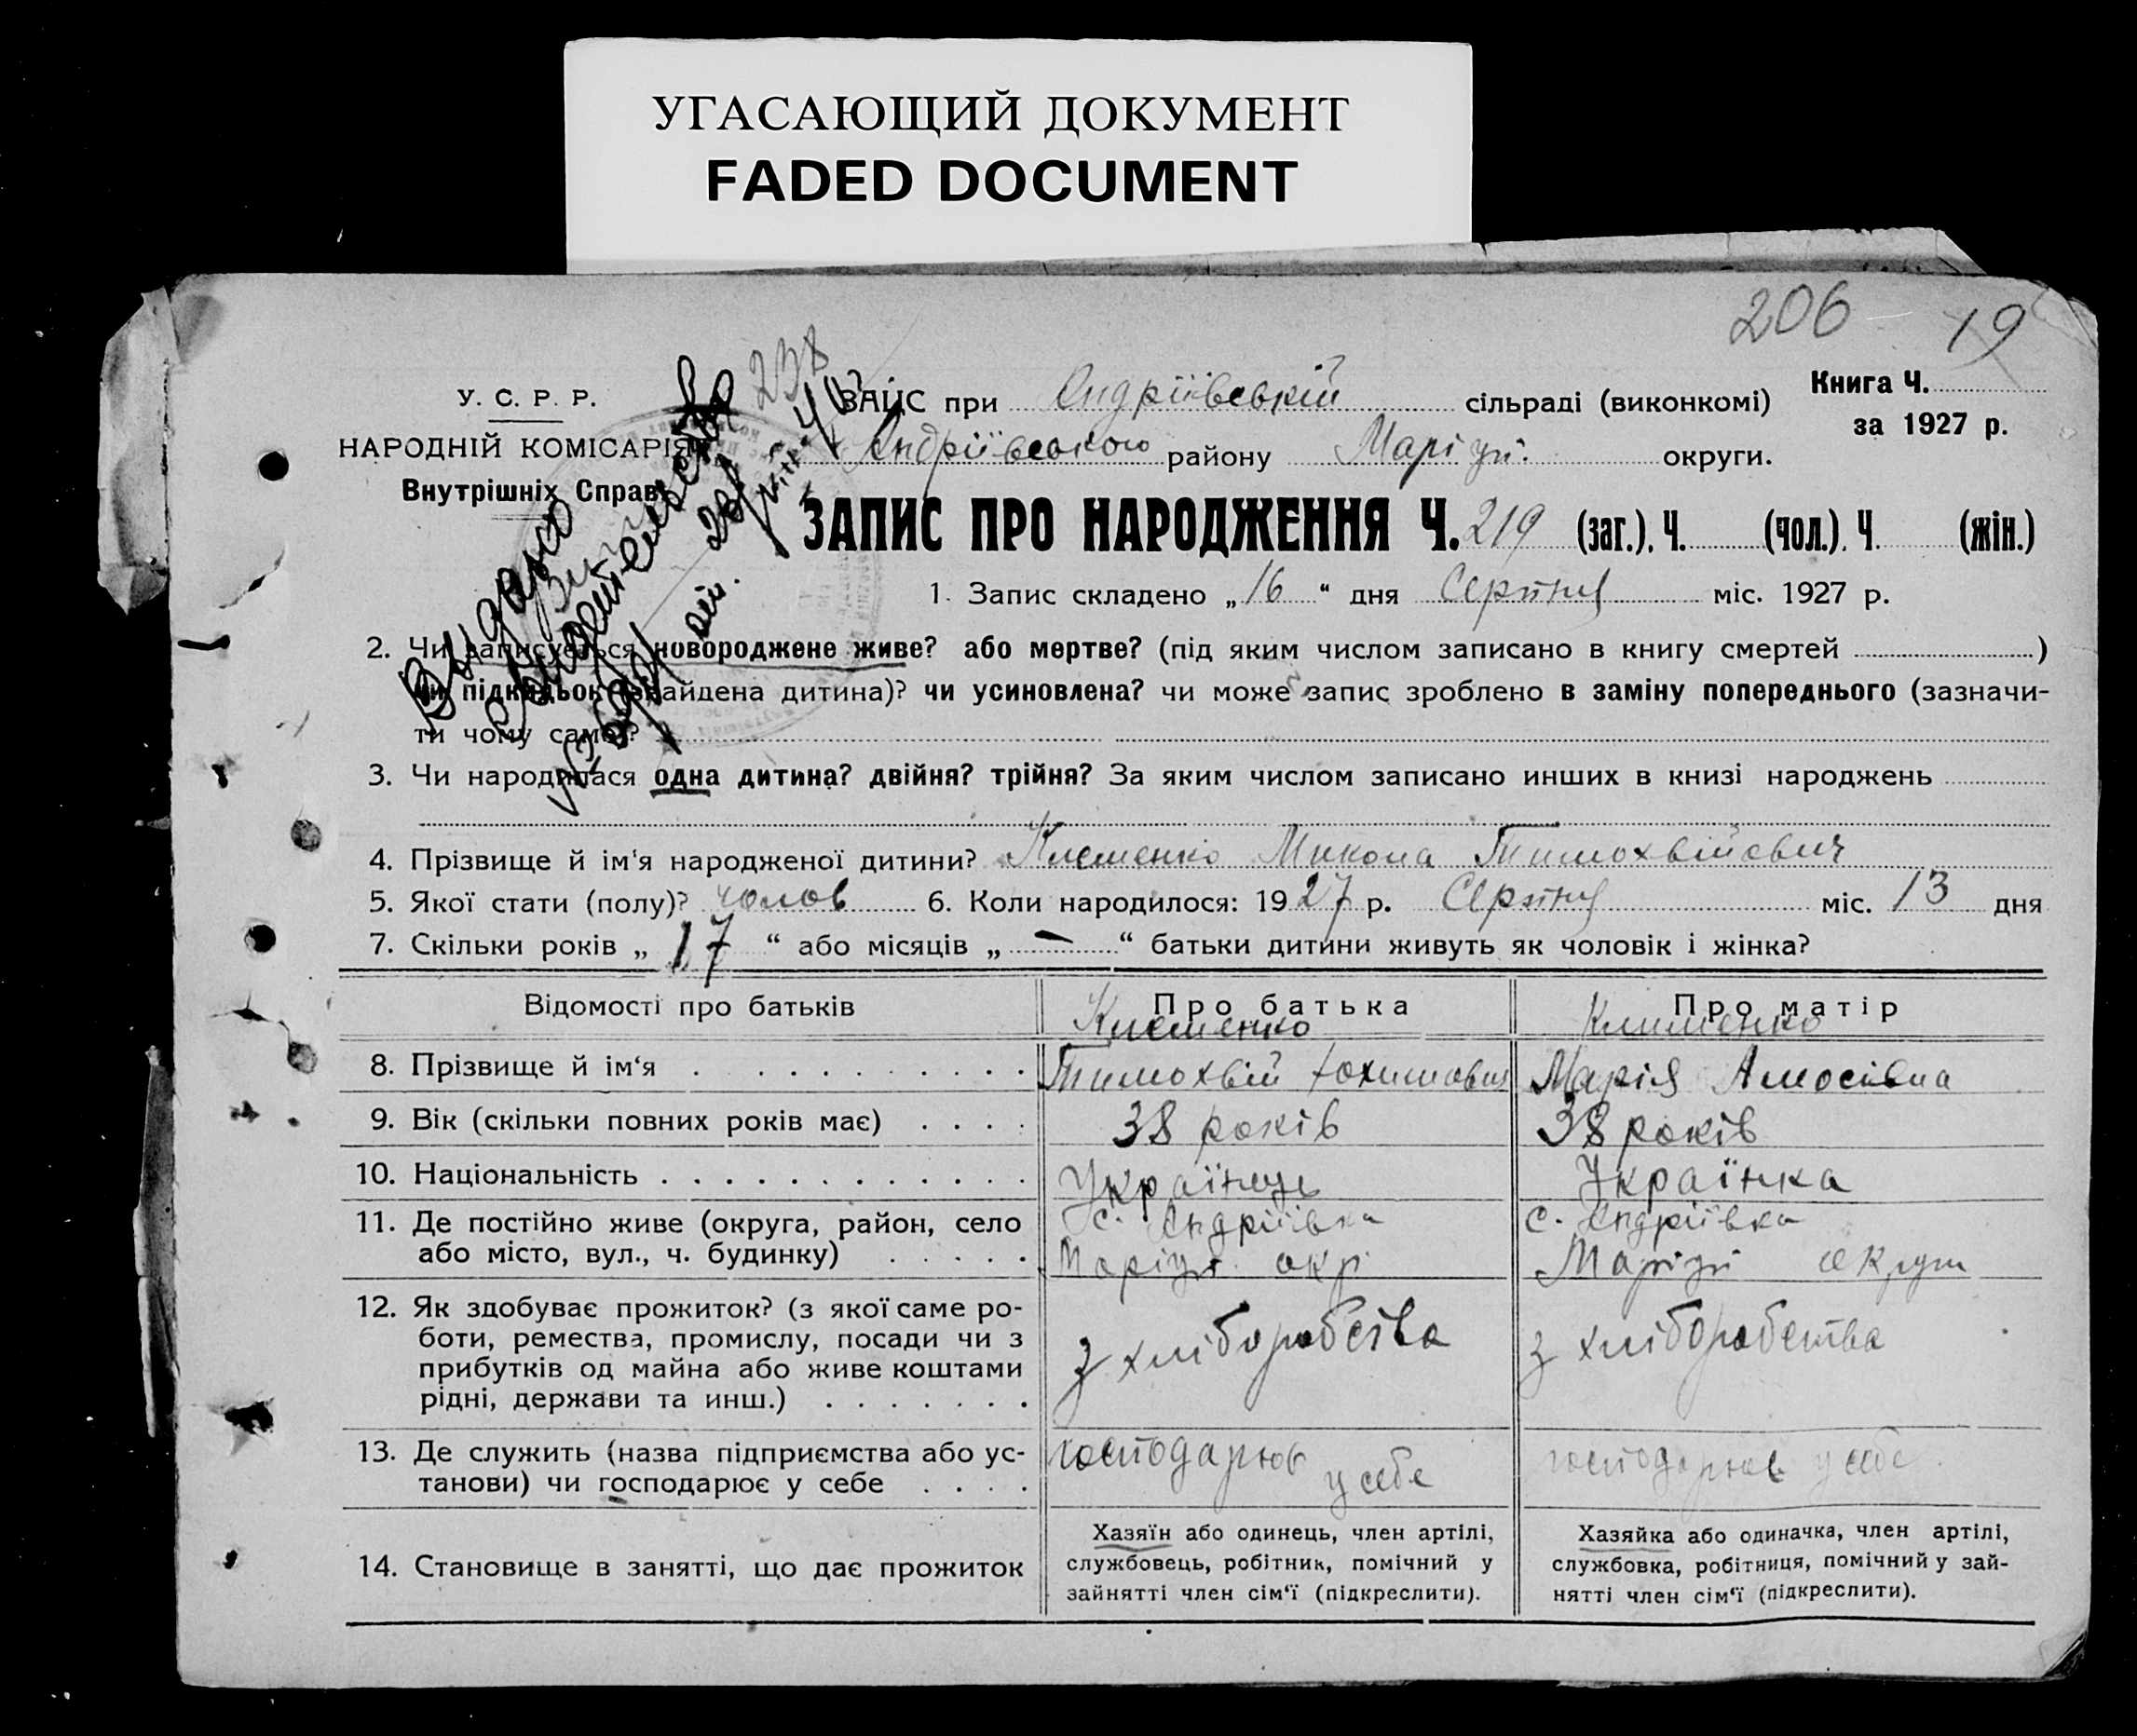 УГАСАЮЩИЙ ДОКУМЕНТ
FADED DOCUMENT
206 19
238
У. С. Р. Р.
НАРОДНІЙ КОМІСАРІЯТ
Внутрішніх Справ
ЗАЦС при Андріївській сільраді (виконкомі)
Андріївського району Маріуп. округи.
Книга Ч.
за 1927 р.
Видано
ЗАПИС ПРО НАРОДЖЕННЯ Ч. 219 (заг.). Ч. (чол.). Ч. (жін.)
1. Запис складено „16“ дня Серпня міс. 1927 р.
2. Чи записується новороджене живе? або мертве? (під яким числом записано в книгу смертей )
чи підкидьок (знайдена дитина)? чи усиновлена? чи може запис зроблено в заміну попереднього (зазначи-
ти чому саме)?
3. Чи народилася одна дитина? двійня? трійня? За яким числом записано инших в книзі народжень
4. Прізвище й ім'я народженої дитини? Клеменко Микола Тимохвійович
5. Якої стати (полу)? чолов 6. Коли народилося: 1927 р. Серпня міс. 13 дня
7. Скільки років „17“ або місяців „–“ батьки дитини живуть як чоловік і жінка?
Відомості про батьків Про батька Про матір
Клеменко Клименко
8. Прізвище й ім‘я Тимохвій Марія Амосівна
9. Вік (скільки повних років має) 38 років 38 років
10. Національність Українець Українка
11. Де постійно живе (округа, район, село с. Андріївка с. Андріївка
або місто, вул., ч. будинку) Маріуп. окр. Маріуп округи
12. Як здобуває прожиток? (з якої саме ро-
боти, ремества, промислу, посади чи з з хліборобства з хліборобства
прибутків од майна або живе коштами
рідні, держави та инш.)
13. Де служить (назва підприємства або ус- господарює господарює у себе
танови) чи господарює у себе у себе
14. Становище в занятті, що дає прожиток
Хазяїн або одинець, член артілі,
службовець, робітник, помічний у
зайнятті член сім‘ї (підкреслити).
Хазяйка або одиначка, член артілі,
службовка, робітниця, помічний у зай-
нятті член сім‘ї (підкреслити).